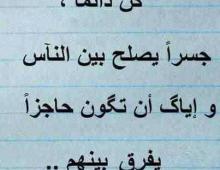 كن دائما ،
جسراً يصلح بين النآس
و إياگ أن تگون حاجزاً
يفرق بينهم ..